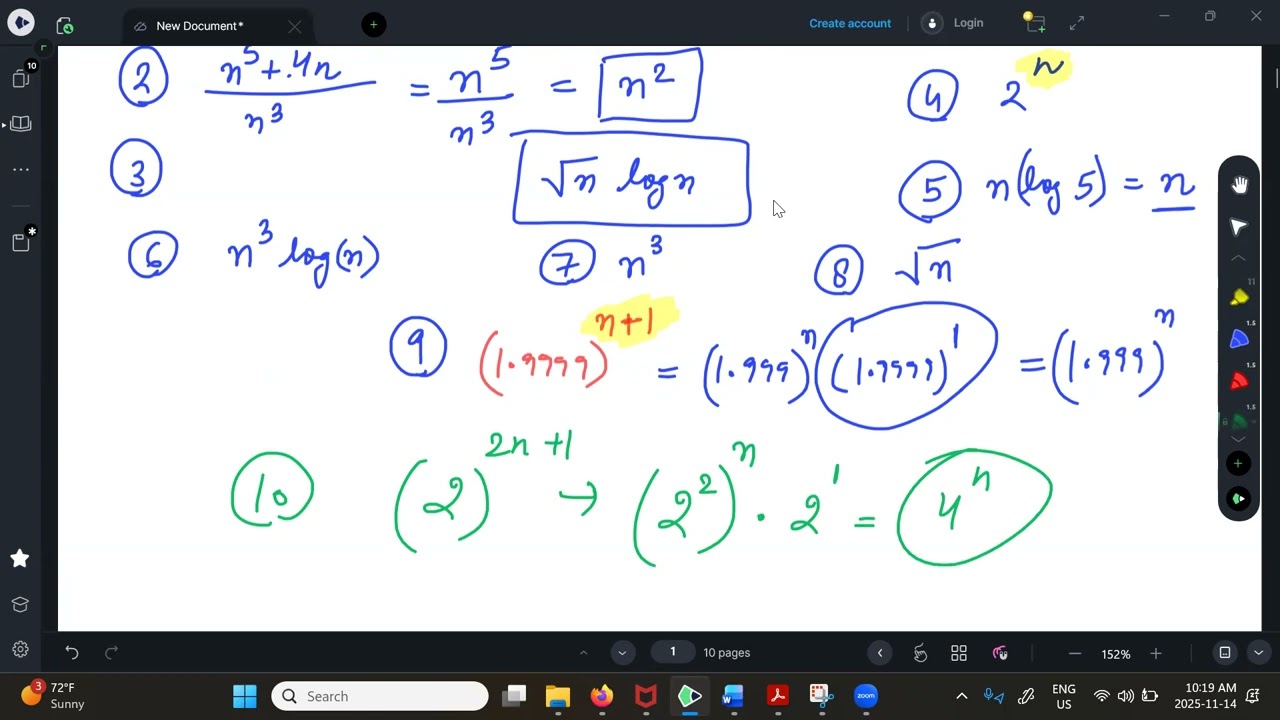 New Document*
Create account
Login
10
② n⁵ + .4n / n³ = n⁵ / n³ = n²
④ 2ⁿ
③ √n log n
⑤ n(log 5) = n
⑥ n³ log(n)
⑦ n³
⑧ √n
⑨ (1.9999)ⁿ⁺¹ = (1.999)ⁿ (1.9999)¹ = (1.999)ⁿ
⑩ (2)²ⁿ⁺¹ → (2²)ⁿ · 2¹ = 4ⁿ
11
1.5
1.5
1.5
1
10 pages
152%
3
72°F
Sunny
Search
zoom
ENG
US
10:19 AM
2025-11-14